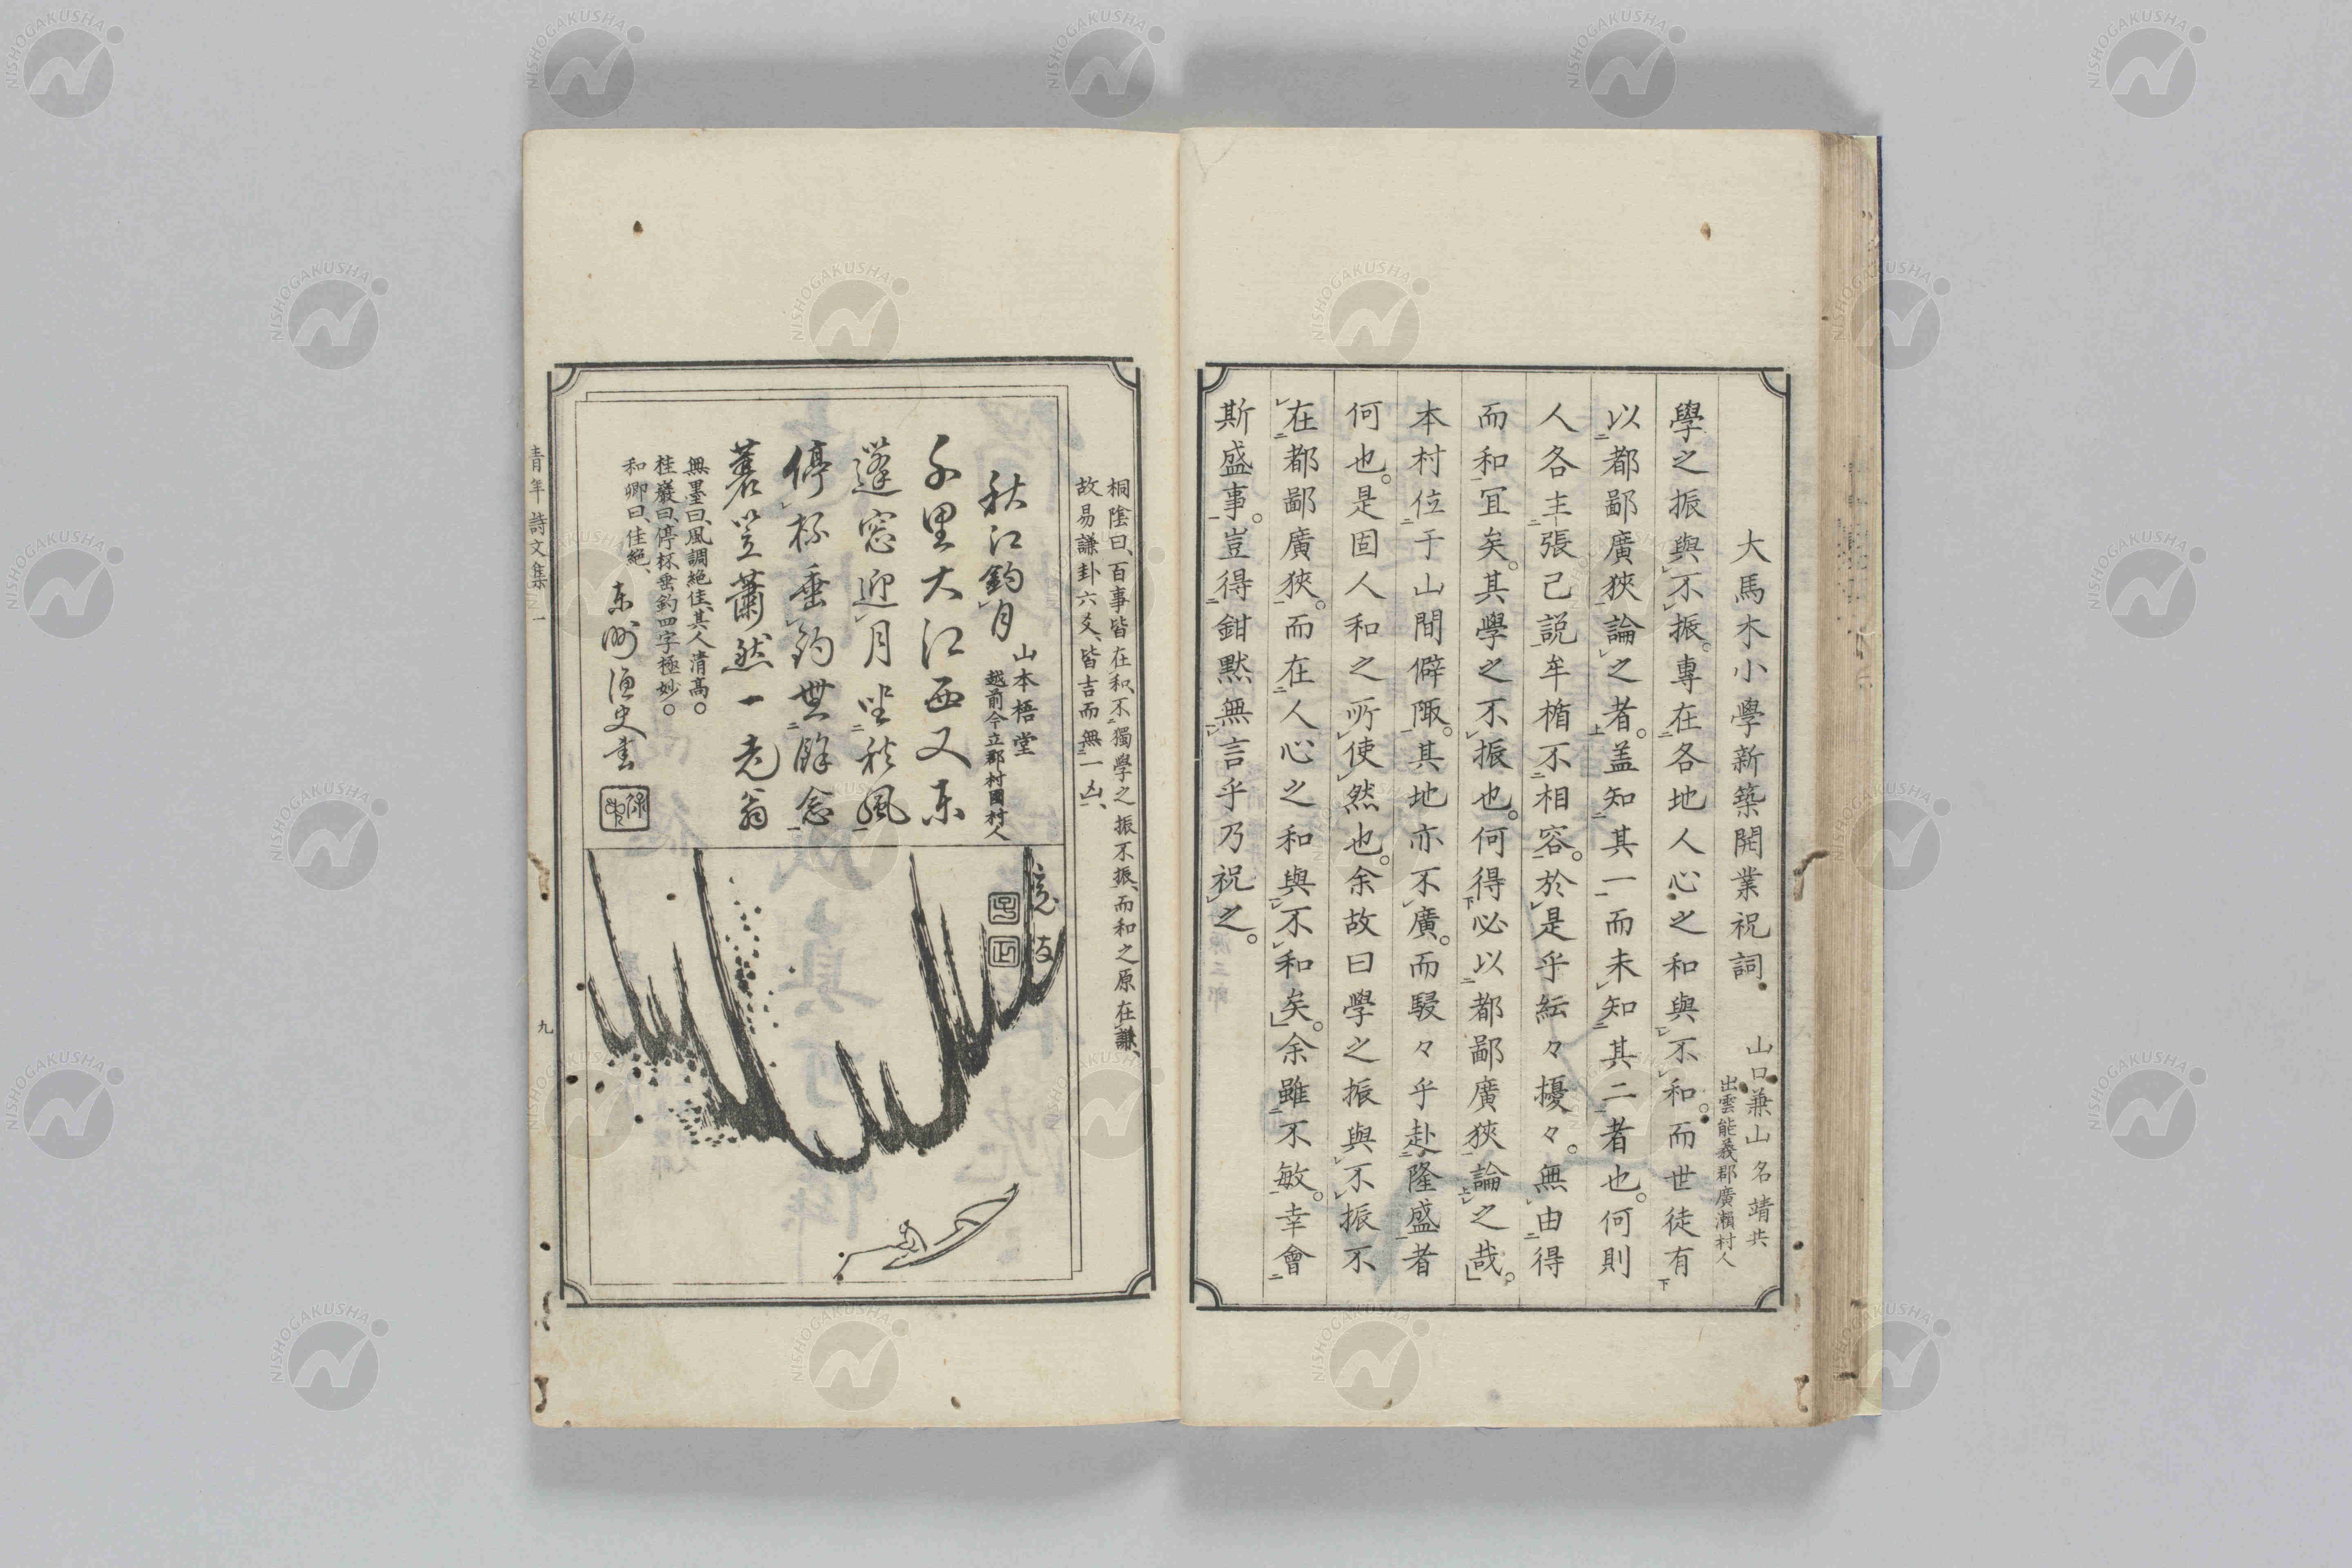 大馬木小學新築開業祝詞
山口兼山 名靖共
出雲能義郡廣瀬村人
學之振與不振。專在各地人心之和與不和。而世徒有
以都鄙廣狹論之者。盖知其一而未知其二者也。何則
人各主張己説牟楯不相容。於是乎紜々擾々。無由得
而和宜矣。其學之不振也。何得必以都鄙廣狹論之哉。
本村位于山間僻陬。其地亦不廣。而駸々乎赴隆盛者
何也。是固人和之所使然也。余故曰學之振與不振不
在都鄙廣狹。而在人心之和與不和矣。余雖不敏。幸會
斯盛事。豈得鉗黙無言乎乃祝之。
桐陰曰、百事皆在和、不獨學之振不振、而和之原在謙、
故易謙卦六爻、皆吉而無一凶、
秋江釣月
山本梧堂
越前今立郡村國村人
千里大江西又東
蓬窓迎月坐秋風
停杯垂釣無餘念
蓑笠蕭然一老翁
無墨曰、風調絶佳、其人清高。
桂巖曰、停杯垂釣四字極妙。
和卿曰、佳絶、
東洲漁史書
青年詩文集
九
NISHOGAKUSHA